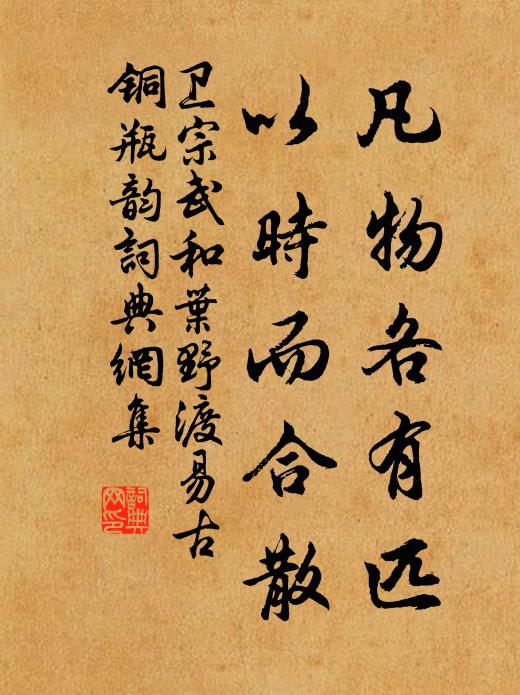 凡物各有匹
以時而合散
卫宗武和葉野渡易古
铜瓶韵詞典網集
詞典网印